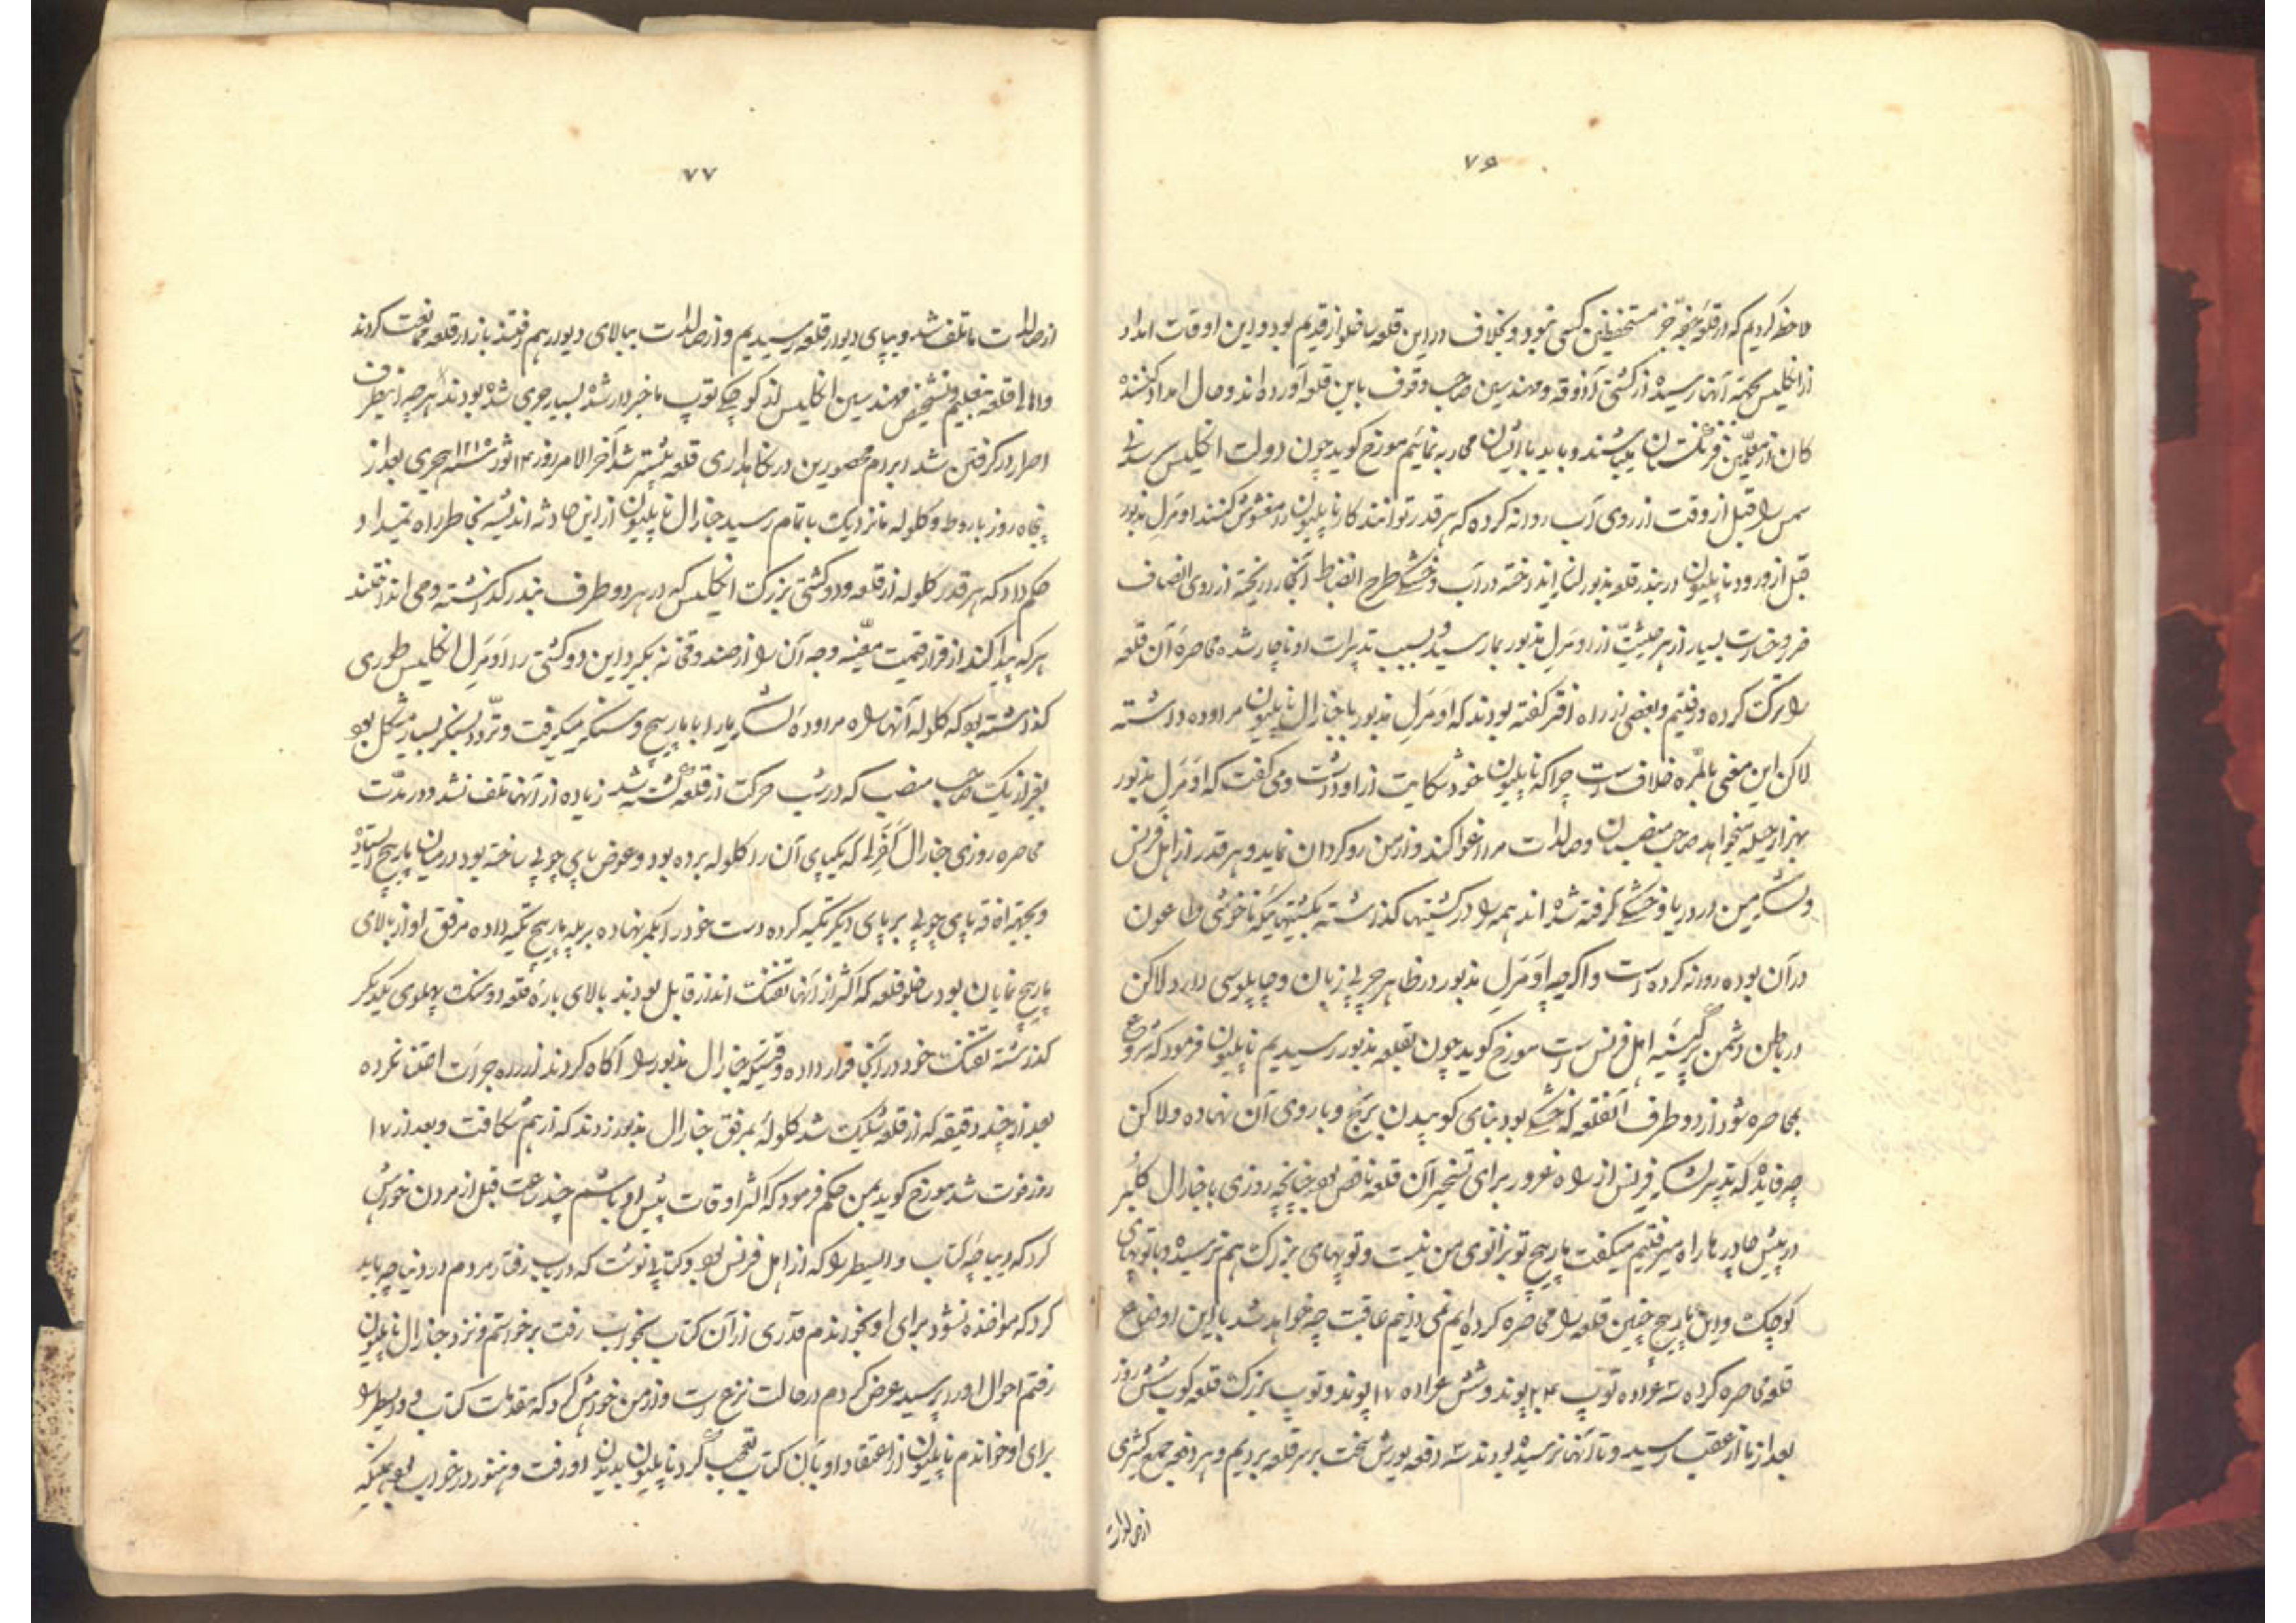 ۷۶
ملاحظه کردیم که در قلعه بجز مستحفظین کسی نبود و بخلاف در این قلعه ساخلو از قدیم بود و این اوقات امداد
از انگلیس بجهة آنها رسیده از کشتی آذوقه و مهندسین صاحب وقوف باین قلعه آورده‌اند و حال امداد کننده
کان از معلمین فرنگستان میباشند و باید با ایشان محاربه نمائیم مورخ گوید چون دولت انگلیس
را قبل از وقت از روی آب روانه کرده که هر قدر توانند کار ناپلیون را مغشوش کنند اومرل مذبور
قبل از ورود ناپلیون در بندر قلعه مذبور لنگر انداخته در آب و خشکی طرح انضباط آنجا را ریخته از روی انصاف
ضرر و خسارت بسیار از هر حیثیت از اومرل مذبور بما رسید و بسبب تدبیرات او ناچار شده محاصرهٔ آن قلعه
را ترک کرده و رفتیم و بعضی از راه افترا گفته بودند که اومرل مذبور با جنارال ناپلیون مراوده داشته
لاکن این معنی بالمره خلافست چرا که ناپلیون خود شکایت از او داشت و می گفت که اومرل مذبور
بهزار حیله میخواهد صاحب منصبان و صالدات مرا اغوا کند و از من رو گردان نماید و هر قدر از اهل فرنس
و لشکر من در دریا و خشکی گرفته شده‌اند همه را در کشتیها گذاشته بکشتیهائیکه ناخوشی طاعون
در آن بوده روانه کرده است و اگرچه اومرل مذبور در ظاهر چرب زبان و چاپلوسی دارد لاکن
در باطن دشمن پر کینه اهل فرنس است مورخ گوید چون بقلعه مذبور رسیدیم ناپلیون فرمود که شروع
بمحاصره شود از دو طرف آنقلعه که خشکی بود بنای کوبیدن برج و باروی آن نهاده ولاکن
چه فایده که تدبیر لشکر فرنس از راه غرور برای تسخیر آن قلعه ناقص بود چنانچه روزی با جنارال کلبر
در پیش چادرها راه میرفتیم میگفت مارپیچ تو بزانوی من نیست و توپهای بزرگ هم نرسیده و با توپهای
کوچک و این مارپیچ چنین قلعه را محاصره کرده‌ایم نمی دانیم عاقبت چه خواهد شد با این اوضاع
قلعه محاصره کرده سه عراده توپ ۲۴ پوند و شش عراده ۱۷ پوند و توپ بزرگ قلعه کوب شش روز
بعد از ما از عقب رسید و تا آنها نرسیده بودند سه دفعه یورش سخت بر سر قلعه بردیم و هر دفعه جمع کثیری
از صالدات
۷۷
از صالدات ما تلف شد و بپای دیوار قلعه رسیدیم و از صالدات ببالای دیوار هم رفتند باز از قلعه ممانعت کردند
و اهالی قلعه بتعلیم و تشخیص مهندسین انگلیس از کوچکی توپ ما خبردار شده بسیار جری شده بودند هر چه از اینطرف
اصرار در گرفتن شد ابرام محصورین در نگاهداری قلعه بیشتر شد آخر الامر روز ۱۴ ثور سنه ۱۲۱۵ هجری بعد از
پنجاه روز باروط و گلوله ما نزدیک باتمام رسید جنارال ناپلیون از این حادثه اندیشه بخاطر راه نمیداد
حکم داد که هر قدر گلوله از قلعه و دو کشتی بزرگ انگلیس که در هر دو طرف بندر گذاشته و می انداختند
هر که پیدا کند از قرار قیمت معینه وجه آن را از صندوقخانه بگیرد این دو کشتی را اومرل انگلیس طوری
گذاشته بود که گلوله آنها راه مراودهٔ لشکر ما را با مارپیچ و سنگر میگرفت و تردد بسنگر بسیار مشکل بود
بغیر از یک صاحب منصب که در شب حرکت از قلعه کشته شد زیاده از آنها تلف نشد و در مدت
محاصره روزی جنارال کفرلی که یکپای آن را گلوله برده بود و عوض پای چوبی ساخته بود در میان مارپیچ ایستاده
و بجهة پای چوبی بر پای دیگر تکیه کرده دست خود را بکمر نهاده بر پله مارپیچ تکیه داده مرفق او از بالای
مارپیچ نمایان بود ساخلو قلعه که اکثر از آنها تفنگ انداز قابل بودند بالای بارهٔ قلعه دو سنگ پهلوی یکدیگر
گذاشته تفنگ خود در آنجا قرار داده وقتیکه جنارال مذبور را آگاه کردند از راه جرات اعتنا نکرده
بعد از چند دقیقه که از قلعه شلیک شد گلوله بمرفق جنارال مذبور زدند که از هم شکافت و بعد از ۱۷
روز فوت شد مورخ گوید بمن حکم فرمود که اکثر اوقات پیش او باشم چند ساعت قبل از مردن خواهش
کرد که دیباچه کتاب والیطر را که از اهل فرنس بود و کتابی نوشت که در باب رفتار مردم در دنیا چه باید
کرد که مواخذه نشود برای او بخوانم قدری از آن کتاب بخواب رفت برخواستم و نزد جنارال ناپلیون
رفتم احوال او را پرسید عرض کردم در حالت نزع است و از من خواهش کرد که مقدمات کتاب والیطر را
برای او خواندم ناپلیون از اعتقاد او بآن کتاب تعجب کرد ناپلیون بدیدن او رفت و هنوز در خواب بود